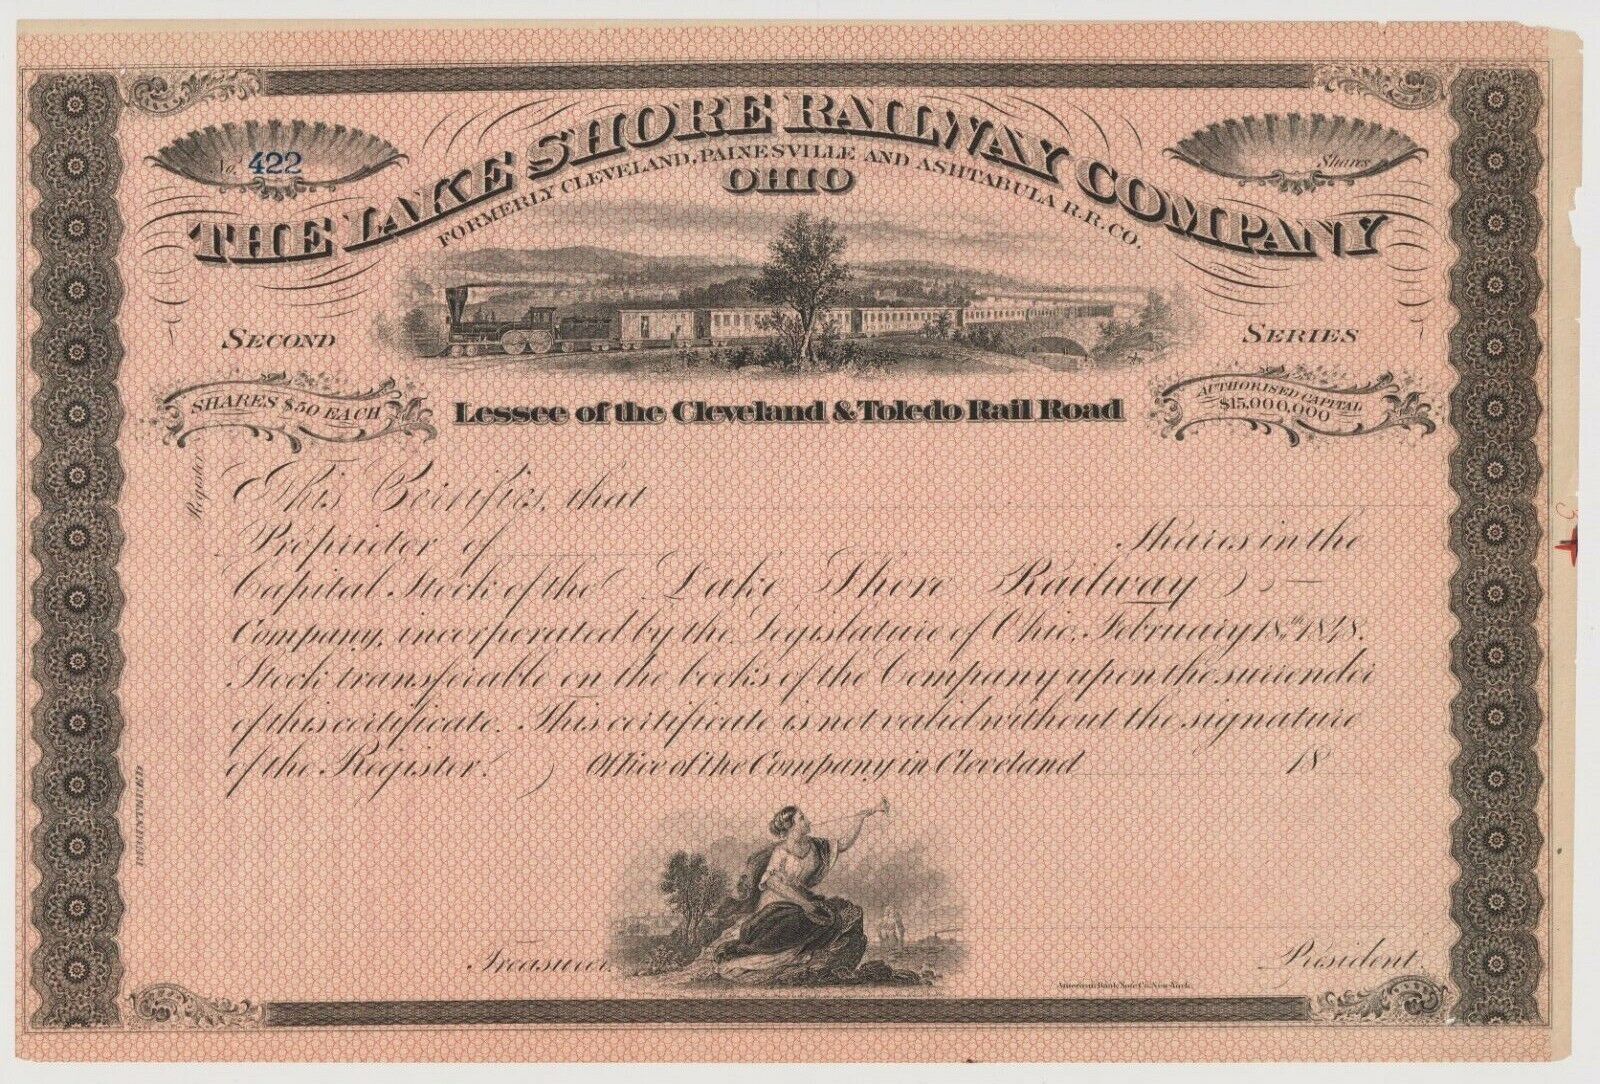 No. 422
Shares
THE LAKE SHORE RAILWAY COMPANY
FORMERLY CLEVELAND, PAINESVILLE AND ASHTABULA R.R. CO.
OHIO
SECOND
SERIES
SHARES $50 EACH
Lessee of the Cleveland & Toledo Rail Road
AUTHORISED CAPITAL
$15,000,000
Register
This Certifies, that
Proprietor of Shares in the
Capital Stock of the Lake Shore Railway
Company, incorporated by the Legislature of Ohio, February 18th 1848.
Stock transferable on the books of the Company upon the surrender
of this certificate. This certificate is not valid without the signature
of the Register.
Office of the Company in Cleveland 18
REGISTERED
Treasurer.
President.
American Bank Note Co. New York.